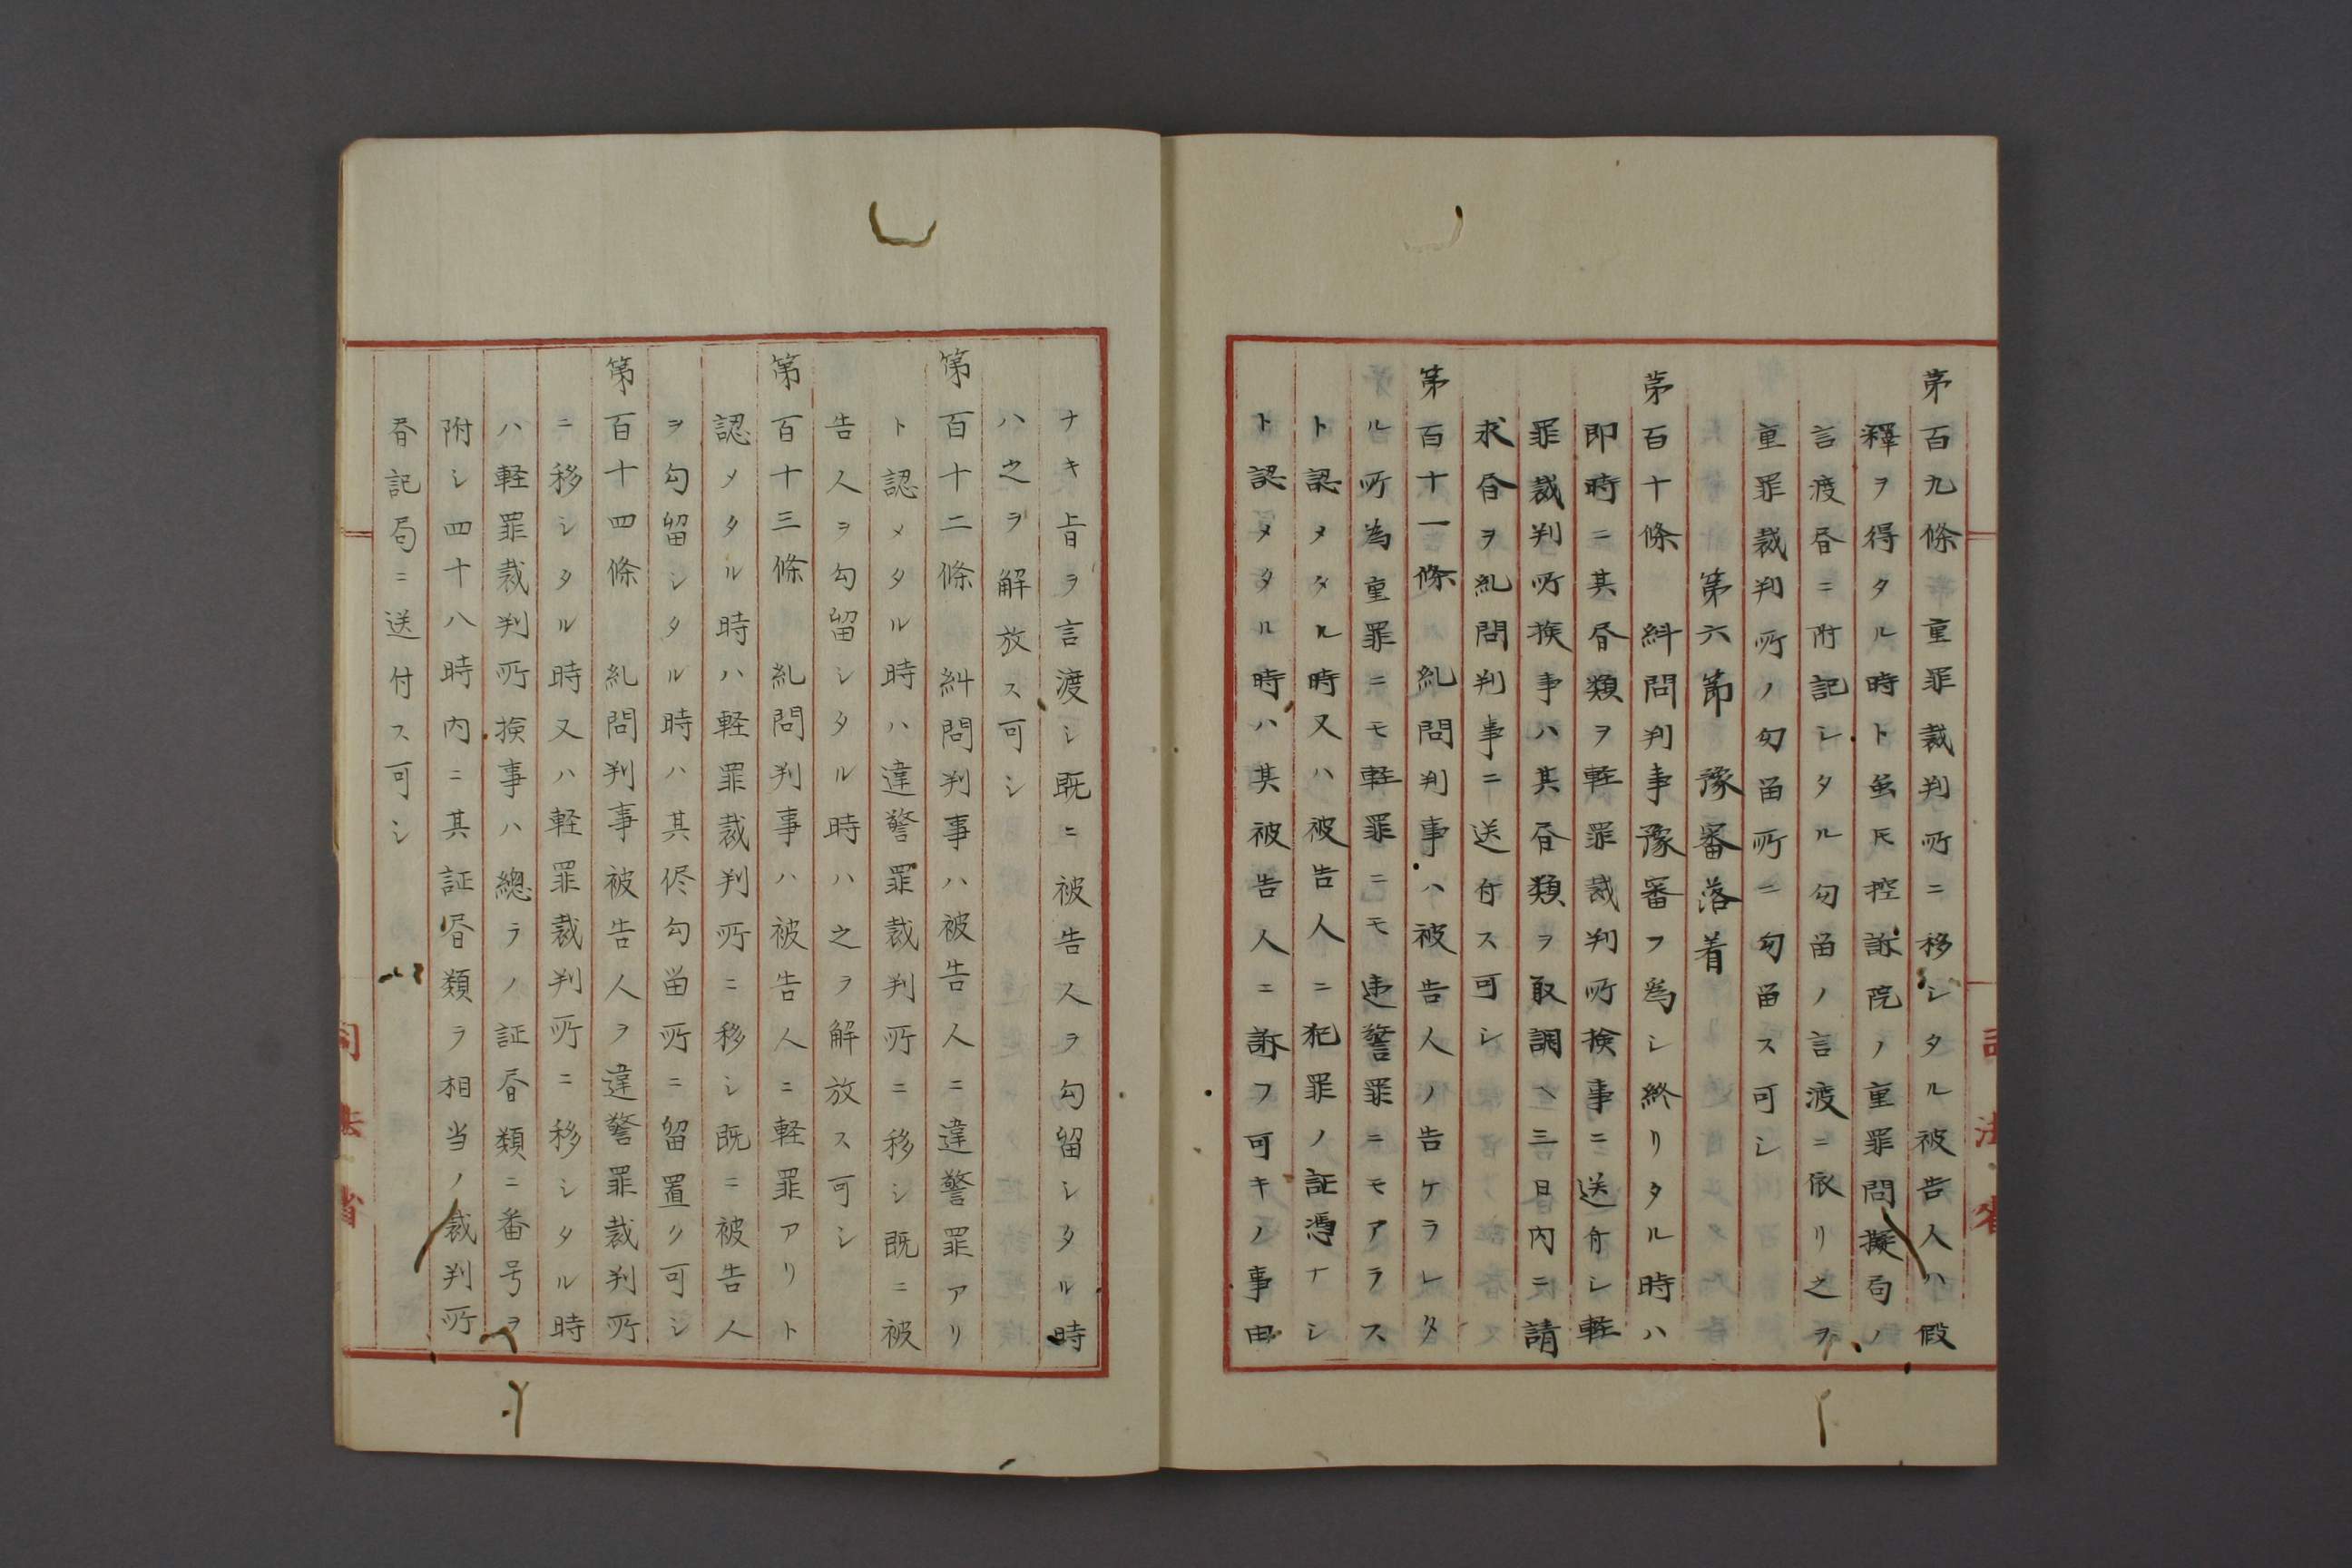 第百九條　重罪裁判所ニ移シタル被告人ハ假
釋ヲ得タル時ト虽𪜈控訴院ノ重罪問擬局ノ
言渡書ニ附記シタル勾畄ノ言渡ニ依リ之ヲ
重罪裁判所ノ勾畄所ニ勾畄ス可シ
第六節　豫審落着
第百十條　糾問判事豫審ヲ爲シ終リタル時ハ
即時ニ其書類ヲ軽罪裁判所検事ニ送付シ軽
罪裁判所検事ハ其書類ヲ取調ヘ三日内ニ請
求書ヲ糺問判事ニ送付ス可シ
第百十一條　糺問判事ハ被告人ノ告ケラレタ
ル所為重罪ニモ軽罪ニモ違警罪ニモアラス
ト認メタル時又ハ被告人ニ犯罪ノ証憑ナシ
ト認メタル時ハ其被告人ニ訴フ可キノ事由
司法省
ナキ旨ヲ言渡シ既ニ被告人ヲ勾留シタル時
ハ之ヲ解放ス可シ
第百十二條　糾問判事ハ被告人ニ違警罪アリ
ト認メタル時ハ違警罪裁判所ニ移シ既ニ被
告人ヲ勾留シタル時ハ之ヲ解放ス可シ
第百十三條　糺問判事ハ被告人ニ軽罪アリト
認メタル時ハ軽罪裁判所ニ移シ既ニ被告人
ヲ勾留シタル時ハ其侭勾畄所ニ留置ク可シ
第百十四條　糺問判事被告人ヲ違警罪裁判所
ニ移シタル時又ハ軽罪裁判所ニ移シタル時
ハ軽罪裁判所検事ハ總ヲノ証書類ニ番号ヲ
附シ四十八時内ニ其証書類ヲ相当ノ裁判所
書記局ニ送付ス可シ
司法省